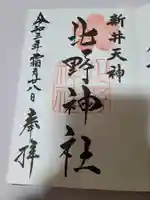 新井天神
北野神社
奉拝
令和五年霜月廿八日